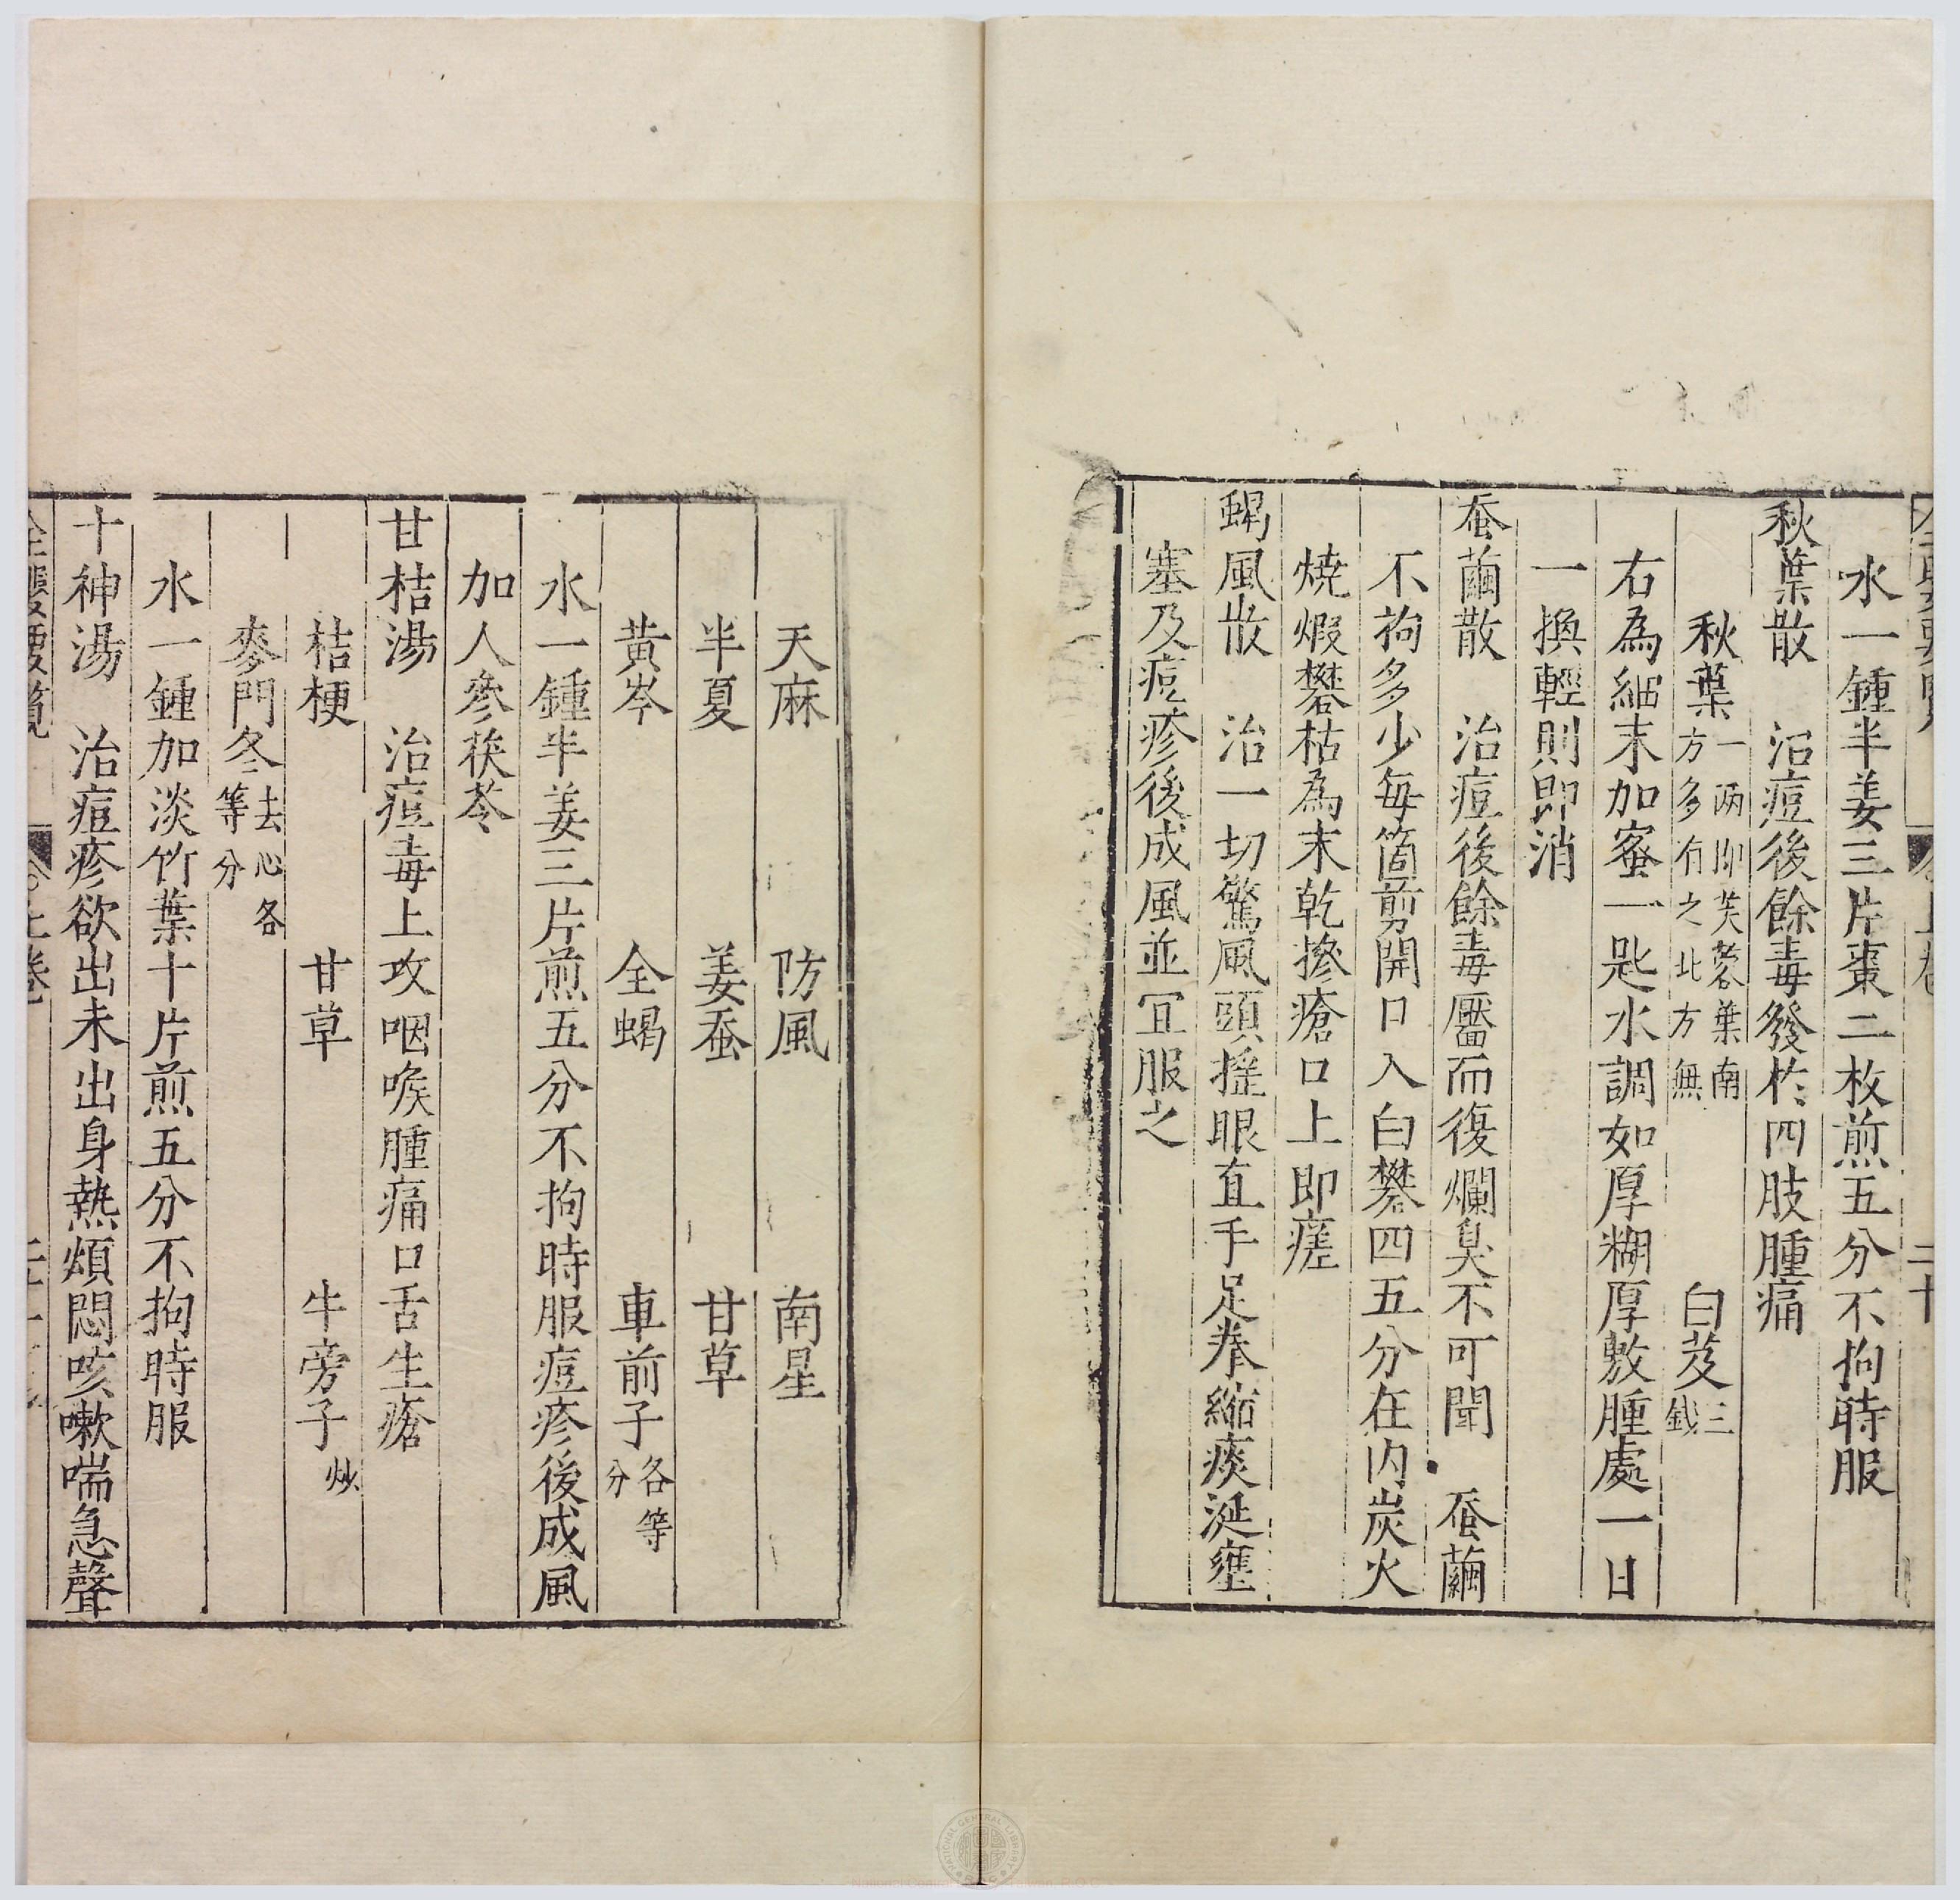 水一鍾半姜三片棗二枚煎五分不拘時服
秋葉散　治痘後餘毒發於四肢腫痛
秋葉一兩即芙蓉葉南方多有之北方無　白芨三錢
右為細末加蜜一匙水調如厚糊厚敷腫處一日
一換輕則即消
蚕繭散　治痘後餘毒靨而復爛臭不可聞　蚕繭
不拘多少每箇剪開口入白礬四五分在内炭火
燒煆礬枯為末乾摻瘡口上即瘥
蝎風散　治一切驚風頭摇眼直手足拳縮痰涎壅
塞及痘疹後成風並冝服之
天麻　防風　南星
半夏　姜蚕　甘草
黃岑　全蝎　車前子各等分
水一鍾半姜三片煎五分不拘時服痘疹後成風
加人參茯苓
甘桔湯　治痘毒上攻咽喉腫痛口舌生瘡
桔梗　甘草　牛旁子炒
麥門冬去心各等分
水一鍾加淡竹葉十片煎五分不拘時服
十神湯　治痘疹欲出未出身熱煩悶咳嗽喘急聲